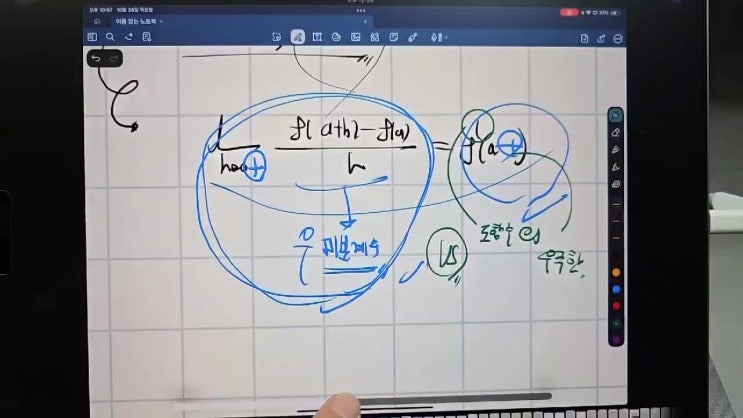 오후 10:07 10월 30일 목요일
이름 없는 노트북
lim h→0+ f(a+h)-f(a) / h = f'(a+)
도함수의
우 미분계수
VS
우극한